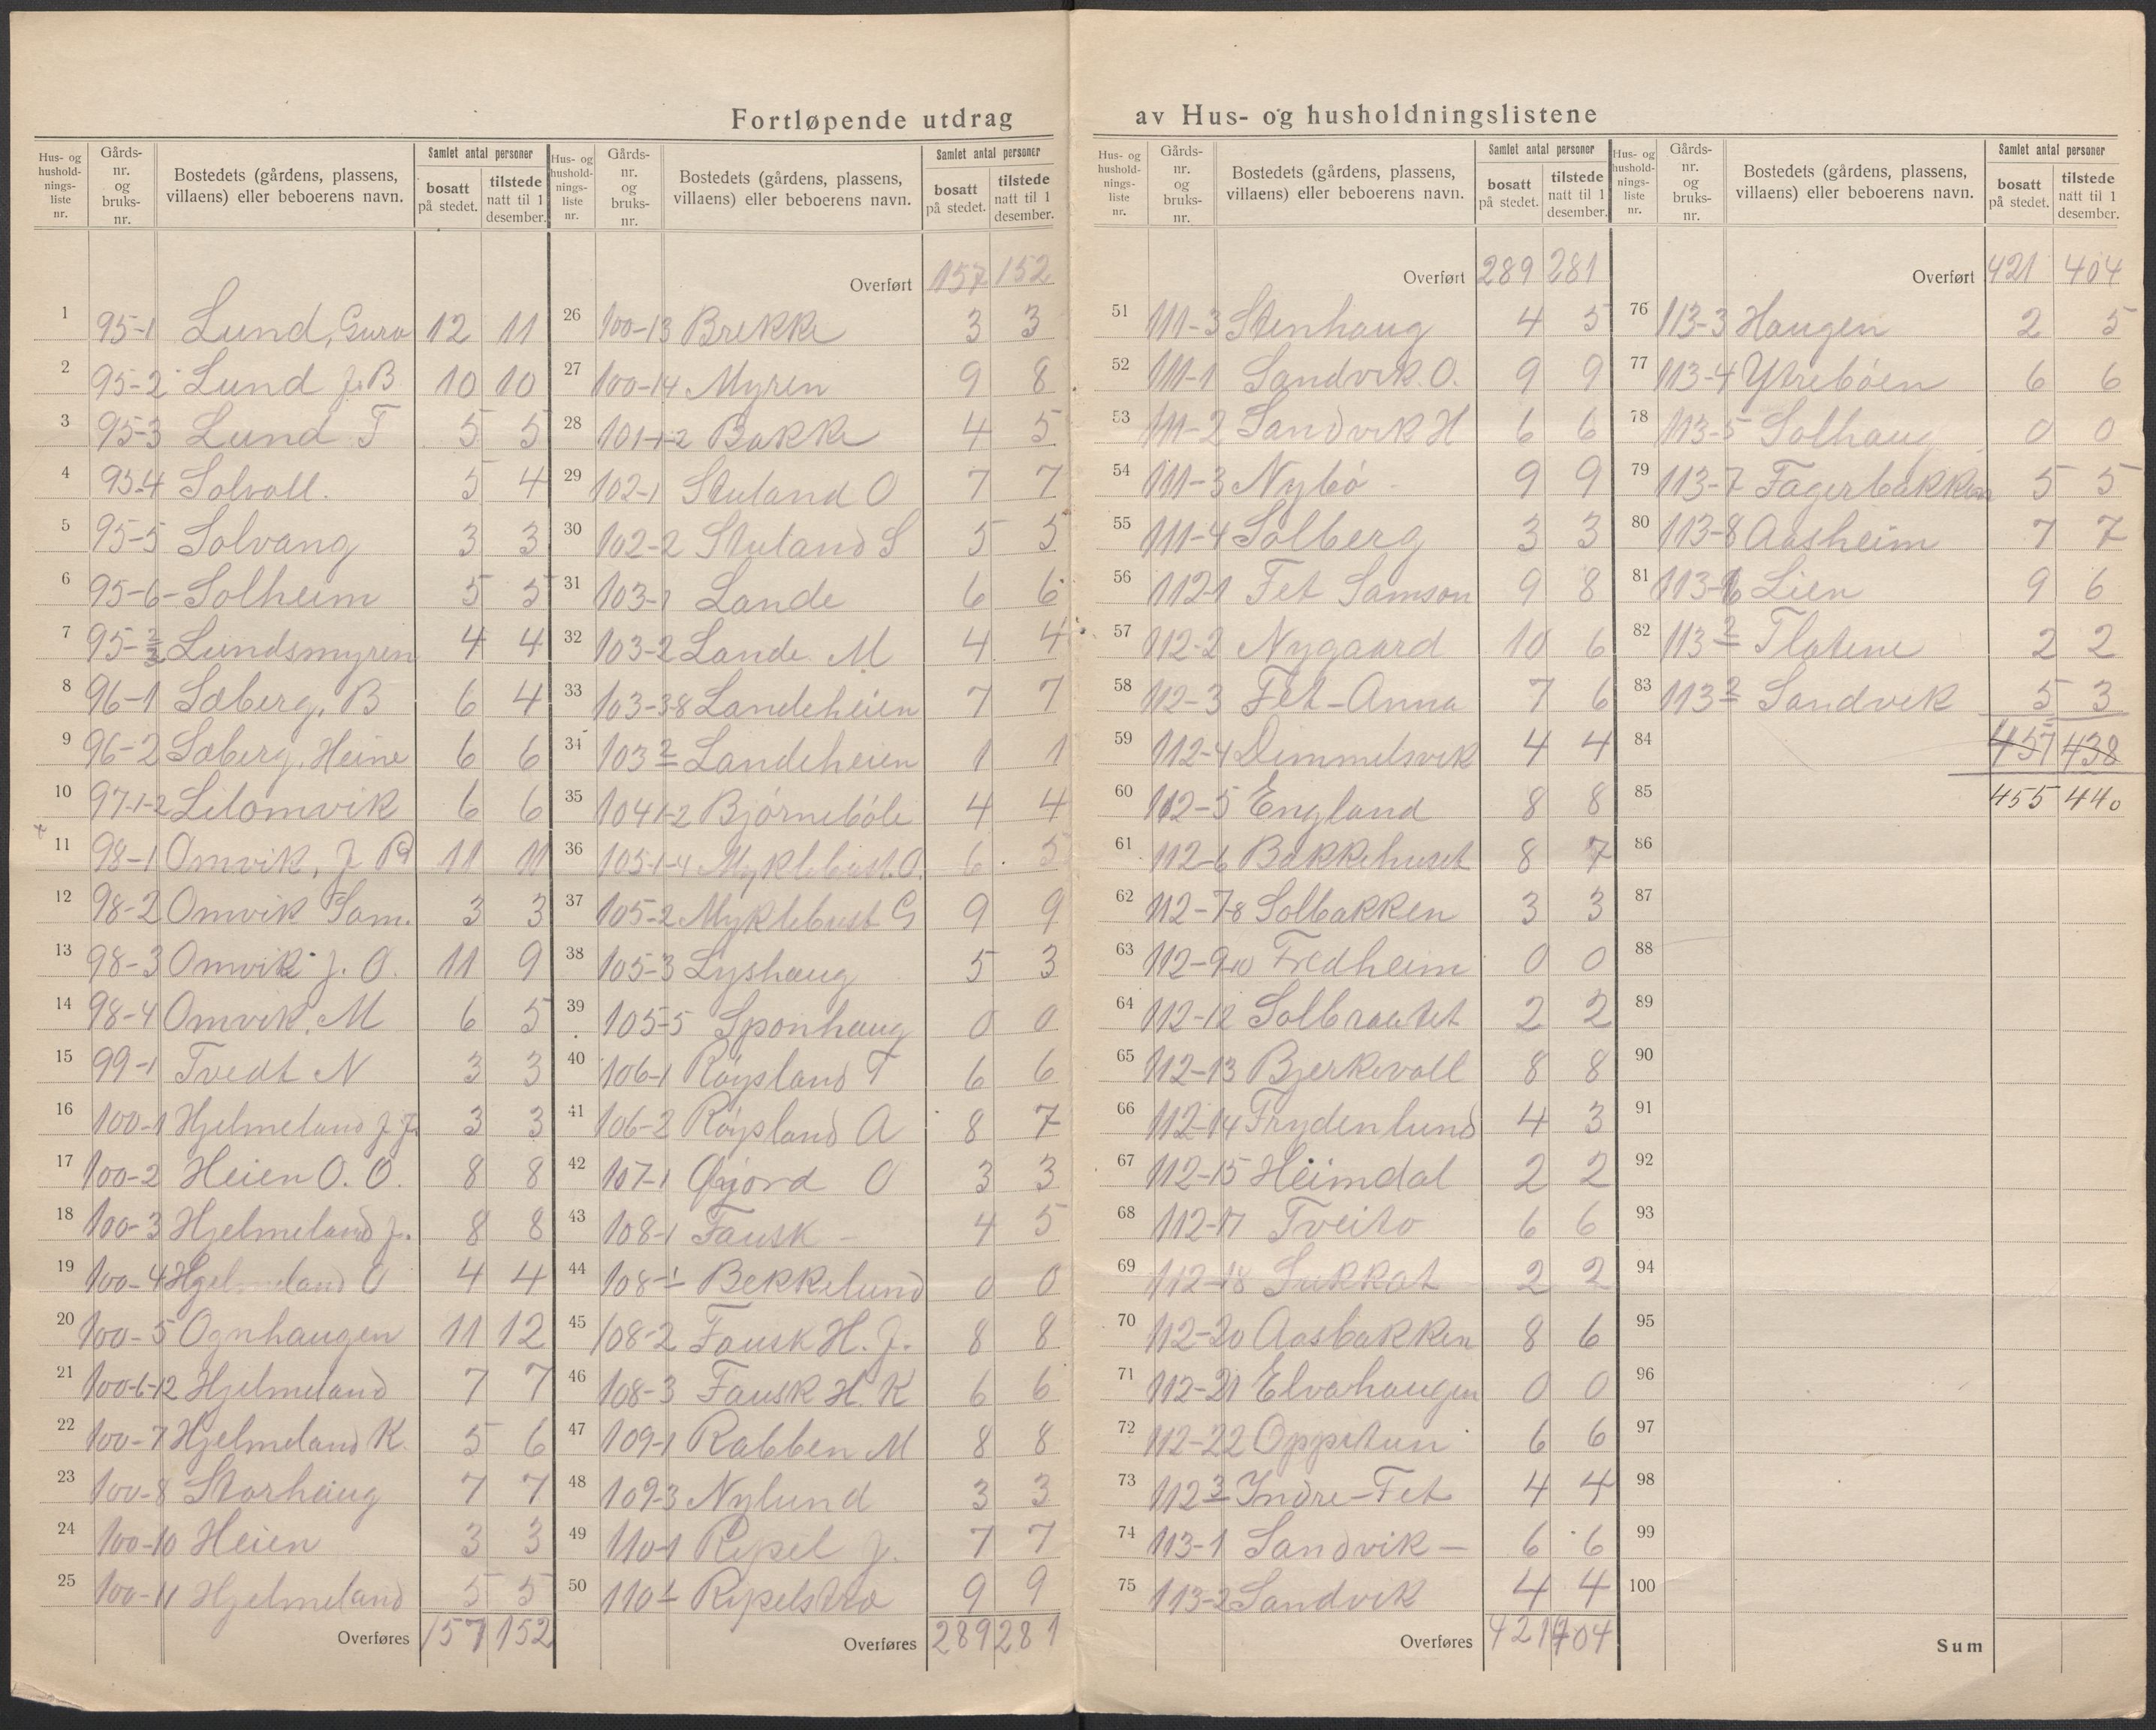 Fortløpende utdrag av Hus- og husholdningslistene
Hus- og hushold-nings-liste nr. | Gårds-nr. og bruks-nr. | Bostedets (gårdens, plassens, villaens) eller beboerens navn. | Samlet antal personer | bosatt på stedet. | tilstede natt til 1 desember.
1 95-1 Lund, Guro 12 11
2 95-2 Lund J.B 10 10
3 95-3 Lund T 5 5
4 95-4 Solvoll. 5 4
5 95-5 Solvang 3 3
6 95-6 Solheim 5 5
7 95- Lundsmyren 4 4
8 96-1 Sæberg, B 6 4
9 96-2 Sæberg, Heine 6 6
10 97-1-2 Litomvik 6 6
11 98-1 Omvik, J 11 11
12 98-2 Omvik Sam. 3 3
13 98-3 Omvik J. O. 11 9
14 98-4 Omvik, M 6 5
15 99-1 Tvedt N 3 3
16 100-1 Hjelmeland J J. 3 3
17 100-2 Heien O. O. 8 8
18 100-3 Hjelmeland J. 8 8
19 100-4 Hjelmeland O 4 4
20 100-5 Ognhaugen 11 12
21 100-6-12 Hjelmeland 7 7
22 100-7 Hjelmeland K. 5 6
23 100-8 Storhaug 7 7
24 100-10 Heien 3 3
25 100-11 Hjelmeland 5 5
Overføres 157 152
Hus- og hushold-nings-liste nr. | Gårds-nr. og bruks-nr. | Bostedets (gårdens, plassens, villaens) eller beboerens navn. | Samlet antal personer | bosatt på stedet. | tilstede natt til 1 desember.
Overført 157 152
26 100-13 Brekke 3 3
27 100-14 Myren 9 8
28 101-1-2 Bakke 4 5
29 102-1 Stuland O 7 7
30 102-2 Stuland S 5 5
31 103-1 Lande 6 6
32 103-2 Lande M 4 4
33 103-3-8 Landeheien 7 7
34 103 2 Landeheien 1 1
35 104 1-2 Bjørnebøle 4 4
36 105-1-4 Myklebust. O. 6 5
37 105-2 Myklebust G 9 9
38 105-3 Lyshaug 5 3
39 105-5 Sponhaug 0 0
40 106-1 Røysland T 6 6
41 106-2 Røysland A 8 7
42 107-1 Øyjord O 3 3
43 108-1 Fausk - 4 5
44 108-1 Bekkelund 0 0
45 108-2 Fausk H. J. 8 8
46 108-3 Fausk H. K 6 6
47 109-1 Rabben M 8 8
48 109-3 Nylund 3 3
49 110-1 Ripel J. 7 7
50 110-1 Ripelstrø 9 9
Overføres 289 281
Hus- og hushold-nings-liste nr. | Gårds-nr. og bruks-nr. | Bostedets (gårdens, plassens, villaens) eller beboerens navn. | Samlet antal personer | bosatt på stedet. | tilstede natt til 1 desember.
Overført 289 281
51 111-3 Stenhaug 4 5
52 111-1 Sandvik. O. 9 9
53 111-2 Sandvik H 6 6
54 111-3 Nybø - 9 9
55 111-4 Solberg 3 3
56 112-1 Fet Samson 9 8
57 112-2 Nygaard 10 6
58 112-3 Fet-Anna 7 6
59 112-4 Dimmelsvik 4 4
60 112-5 England 8 8
61 112-6 Bakkehuset 8 7
62 112-7-8 Solbakken 3 3
63 112-9-10 Fredheim 0 0
64 112-12 Solbraatet 2 2
65 112-13 Bjerkevoll 8 8
66 112-14 Frydenlund 4 3
67 112-15 Heimdal 2 2
68 112-17 Tveito 6 6
69 112-18 Sukkat 2 2
70 112-20 Aasbakken 8 6
71 112-21 Elvahaugen 0 0
72 112-22 Oppstun 6 6
73 112 3 Indre-Fet 4 4
74 113-1 Sandvik - 6 6
75 113-2 Sandvik 4 4
Overføres 421 404
Hus- og hushold-nings-liste nr. | Gårds-nr. og bruks-nr. | Bostedets (gårdens, plassens, villaens) eller beboerens navn. | Samlet antal personer | bosatt på stedet. | tilstede natt til 1 desember.
Overført 421 404
76 113-3 Haugen 2 5
77 113-4 Ytrebøen 6 6
78 113-5 Solhaug 0 0
79 113-7 Fagerbakken 5 5
80 113-8 Aasheim 7 7
81 113-16 Lien 9 6
82 113 2 Flatene 2 2
83 113 2 Sandvik 5 3
84 457 438
85 455 440
86
87
88
89
90
91
92
93
94
95
96
97
98
99
100
Sum